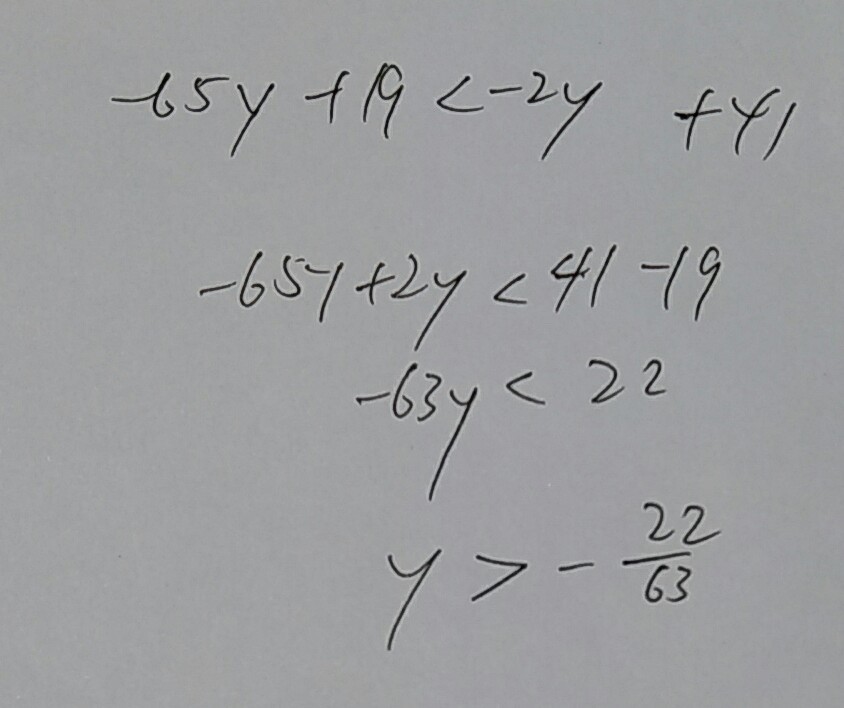 -65y +19 <-2y +41
-65y+2y < 41 -19
-63y < 22
y > - 22/63